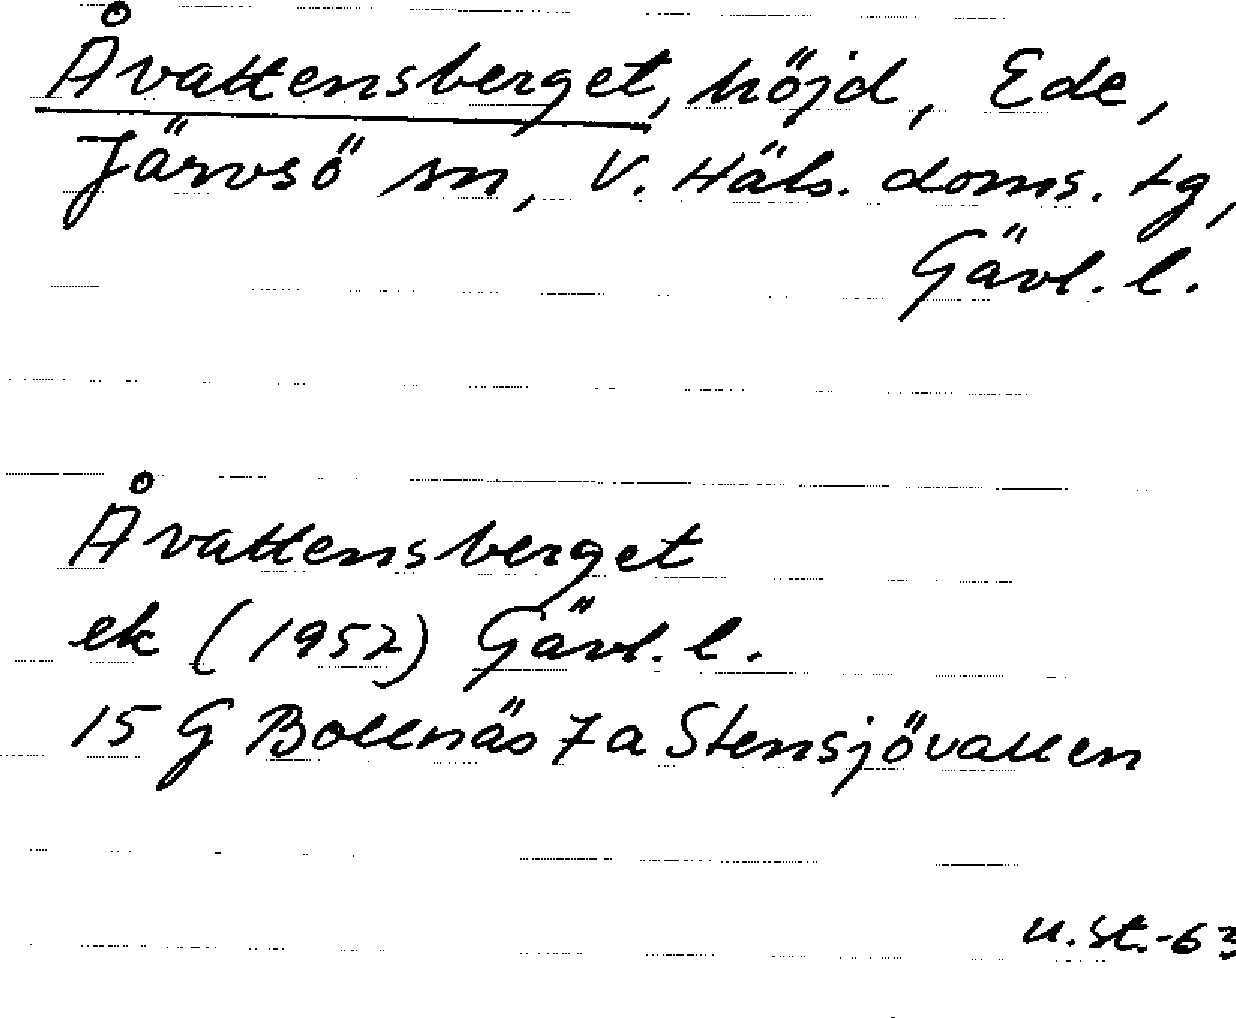 Åvattensberget, höjd, Ede,
Järvsö sn, V. Häls. doms. tg,
Gävl. l.
Åvattensberget
ek (1952) Gävl. l.
15 G Bollnäs 7a Stensjövallen
u.St.-63